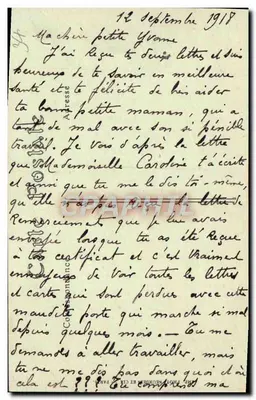 12 Septembre 1917
Ma chère petite Yvonne
J'ai Reçue tes deux lettres et suis
heureuse de te savoir en meilleure
santé et te félicite de bien aider
ta bonne petite maman, qui a
tant de mal avec son si pénible
travail. Je vois d'après la lettre
que Mademoiselle Caroline t'a écrite
et ainsi que tu me le dis toi même,
qu'elle de lettre de
Remerciement que je lui avais
envoyée lorsque tu as été Reçue
à ton certificat et c'est vraiment
ennuyeux de voir toutes les lettres
et cartes qui sont perdues avec cette
maudite poste qui marche si mal
depuis quelques mois. — Tu me
demandes à aller travailler, mais
tu ne me dis pas dans quoi et à
cela est ??? Tu comprends ma
Carte Postale
Correspondance
Adresse